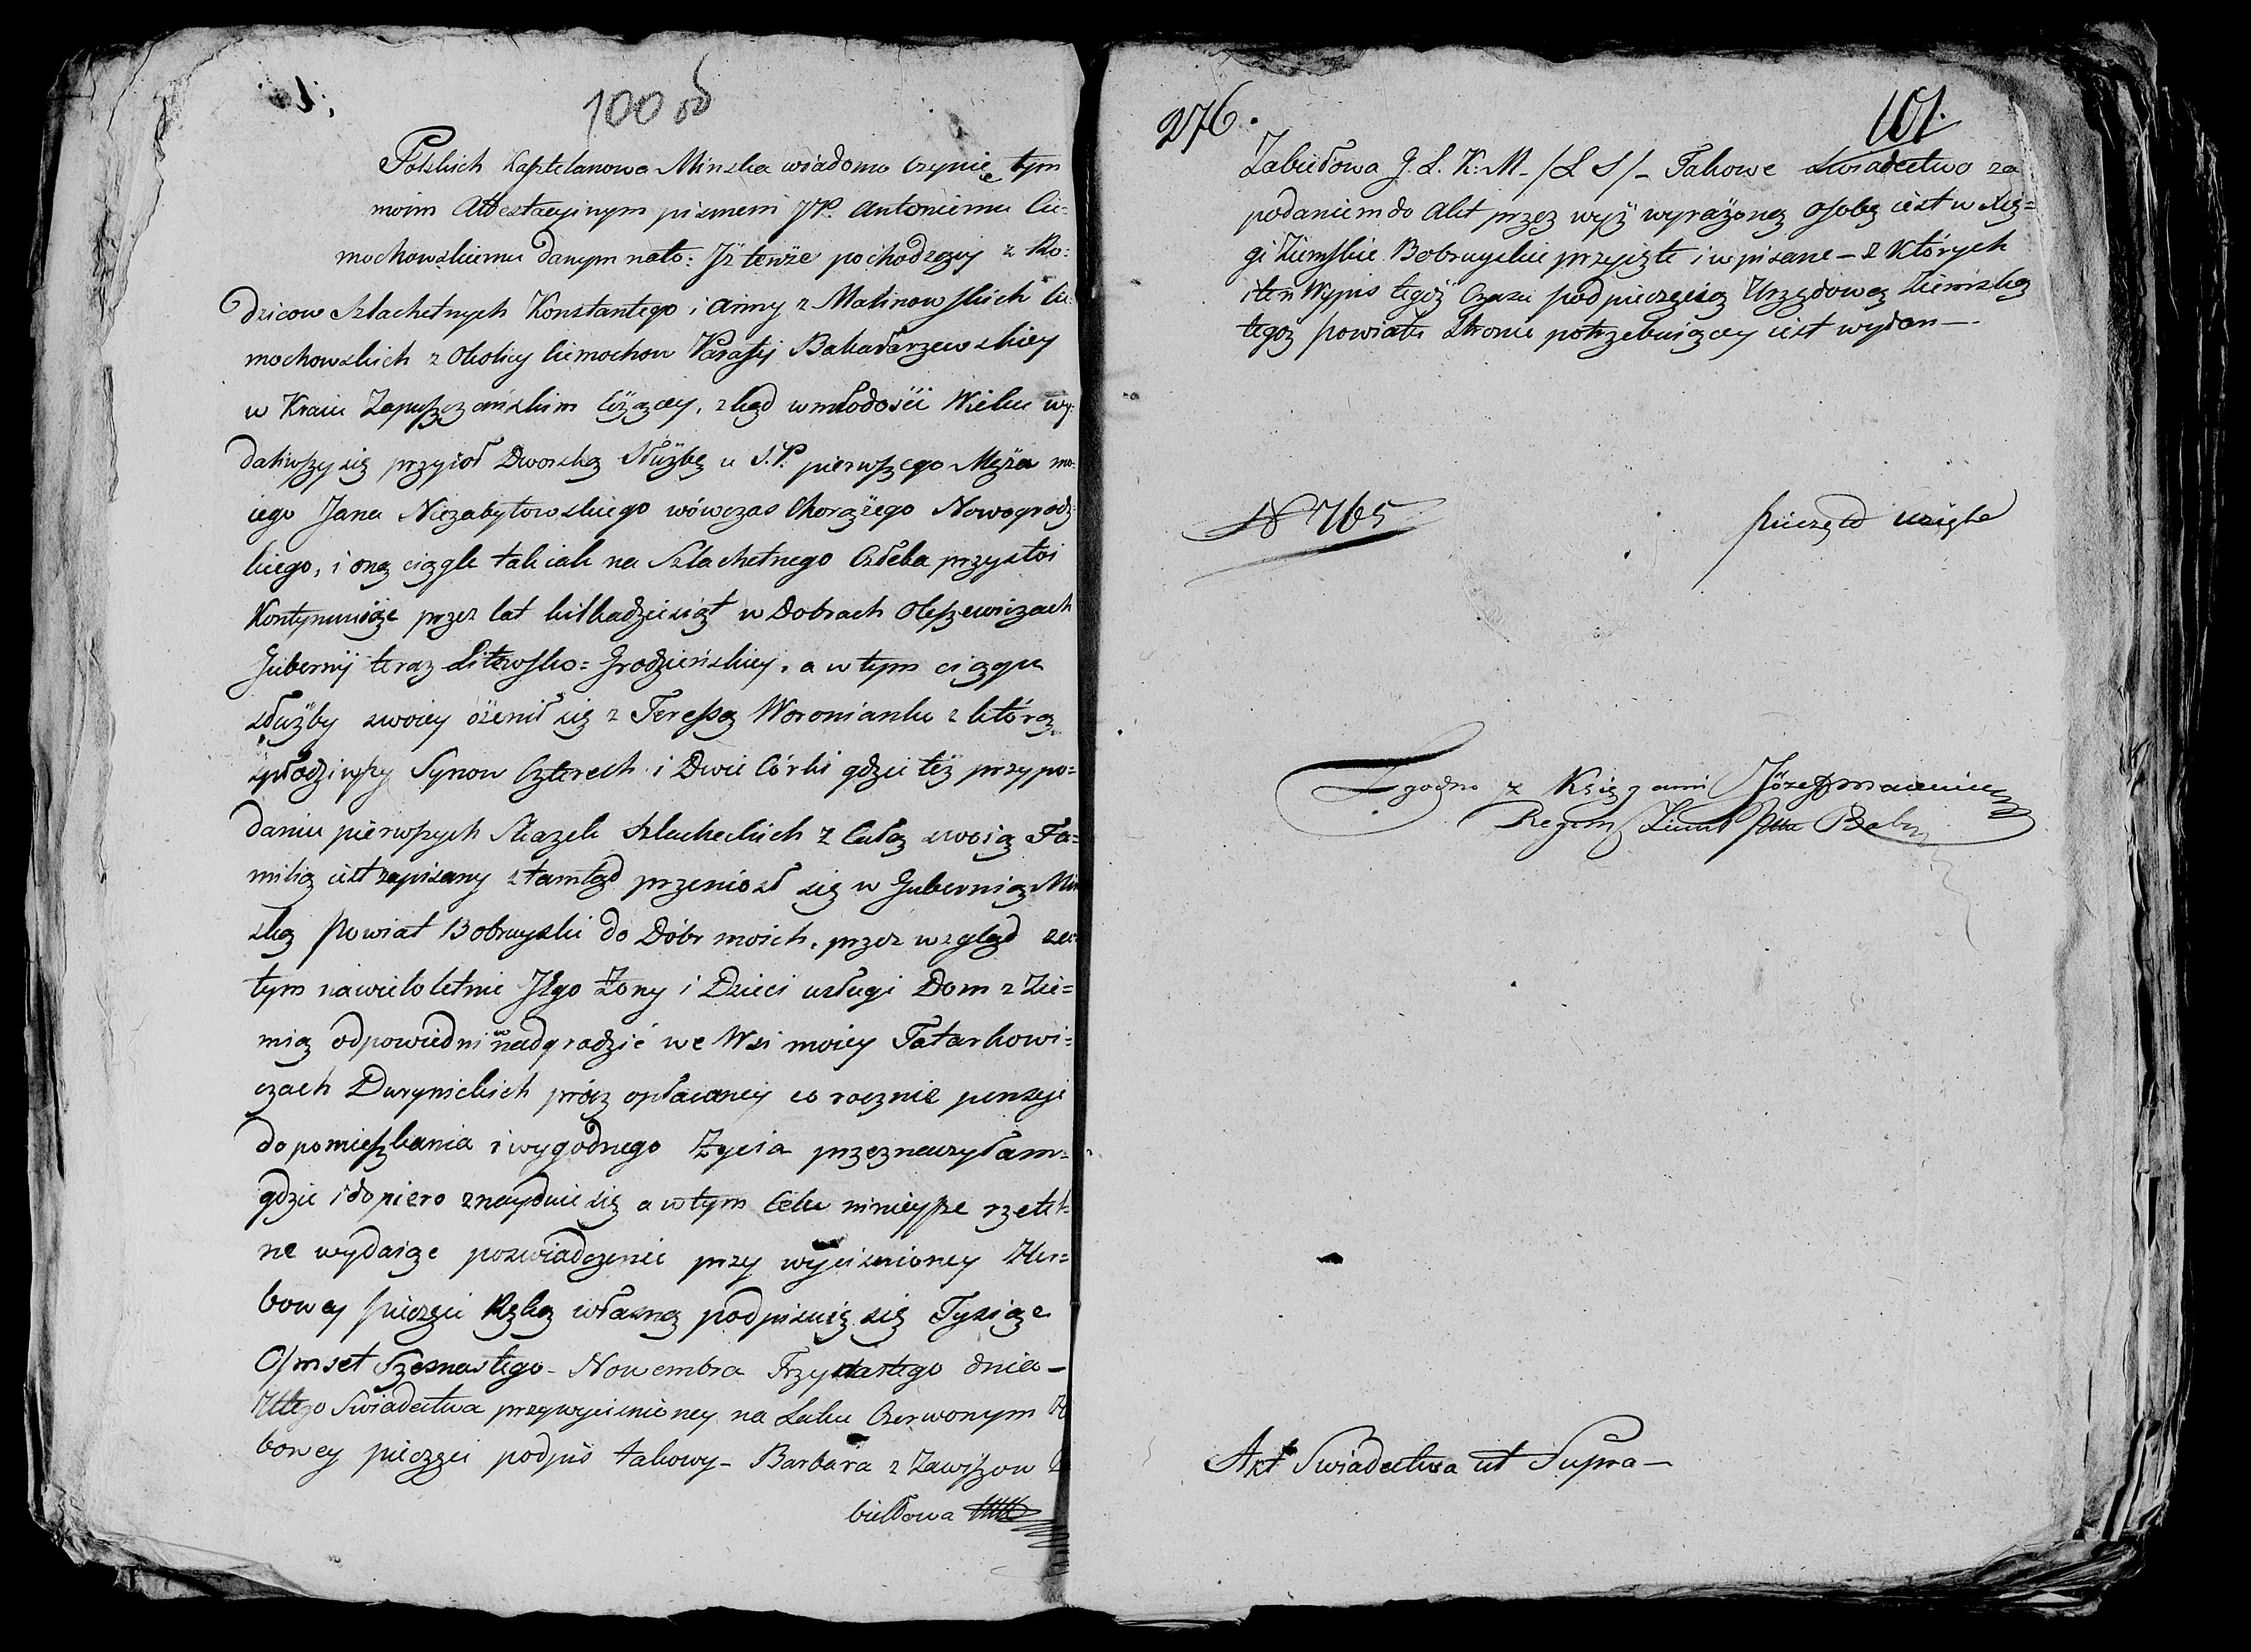 100 об
Polskich Kasztelanowa Minska wiadomo czynię tym
moim Attestacyinym pismem JP. Antoniemu Cie-
mochowskiemu danym na to: Jż tenże pochodzący z Ro:
dzicow Szlachetnych Konstantego i Anny z Malinowskich Cie
mochowskich z Okolicy Ciemochow Parafij Bakałarzewskiey
w Kraiu Zapuszczańskim leżącey, zkąd w młodości Wieku wy:
daliwszy się przyioł Dworską Służbę u S.P. pierwszego Męża mo:
iego Jana Niezabytowskiego wówczas Chorążego Nowogrodz:
kiego, i oną ciągle tak iak na Szlachetnego Człeka przystoi
Kontynuuiąc przez lat kilkadziesiąt w Dobrach Olszewiczach
Gubernij teraz Litewsko=Grodzieńskiey, a w tym ciągu
służby swoiey ożenił się z Teressą Woronianką z którą
spłodziwszy Synow Czterech i Dwie Córki gdzie też przy po=
daniu pierwszych Skazek Szlacheckich z Całą swoią Fa=
milią iest zapisany ztamtąd przeniosł się w Gubernią Min
ską Powiat Bobruyski do Dóbr moich, przez wzgląd za
tym na wieloletnie Jego Żony i Dzieci usługi Dom z Zie=
mią odpowiednio nadgradzić we Wsi moiey Tatarkowi=
czach Durynickich prócz opłacaney co rocznie pensyi
do pomieszkania i wygodnego Życia przeznaczyłam=
gdzie i dopiero znayduie się a w tym Celu ninieysze rzetel-
ne wydaiąc poswiadczenie przy wycisnioney Her=
bowey pieczęci Ręką własną podpisuię się Tysiąc
Osmset Szesnastego - Nowembra Trzynastego dnia -
U tego Swiadectwa przy wycisnioney na Laku Czerwonym He
bowey pieczęci podpis takowy - Barbara z Zawiszow Za
biełłowa
276.
101.
Zabiełłowa J. L. K: M - /L S/ - Takowe Swiadectwo za
podaniem do Akt przez wyż wyrażoną Osobę iest w Xię=
gi Ziemskie Bobruyskie przyięte i wpisane - z Których
i ten Wypis tegoż Czasu pod pieczęcią Urzędową Ziemską
tegoż Powiatu Stronie potrzebuiącey iest wydan -
N 765
Zgodno z Księgami Józef
Regent Ziemst Pttu Bobr
Akt Swiadectwa ut Supra -